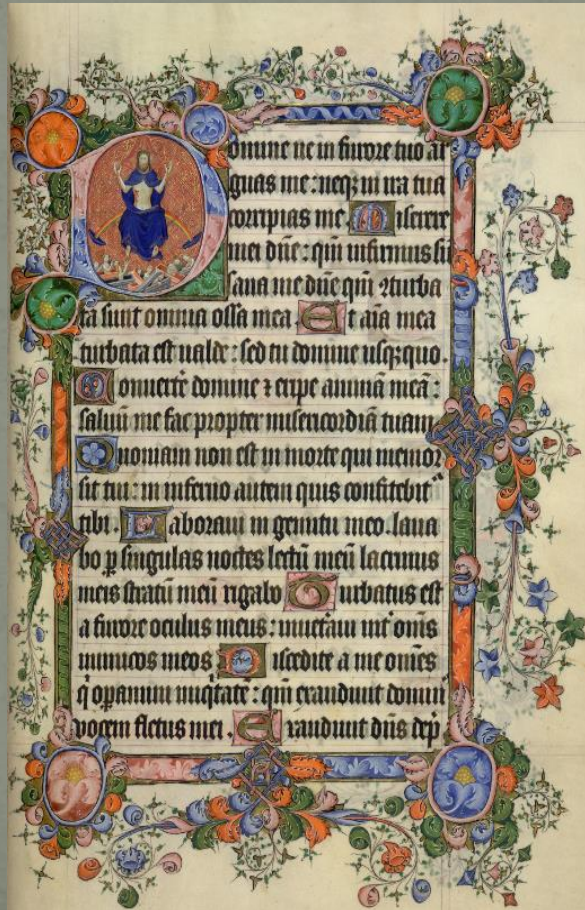 Domine ne in furore tuo ar
guas me: neqꝫ in ira tua
corripias me Miserere
mei dn̄e: qm̄ infirmus sū
sana me dn̄e qm̄ ꝯturba
ta sunt omnia ossa mea Et aīa mea
turbata est ualde: sed tu domine usqꝫquo.
Conuerte domine ⁊ eripe animā meā:
saluū me fac propter misericordiā tuam
Quoniam non est in morte qui memor
sit tui: in inferno autem quis confitebit᷑
tibi. Laboraui in gemitu meo. laua
bo ꝑ singulas noctes lectū meū lacrimis
meis stratū meū rigabo Turbatus est
a furore oculus meus: inuetaui int᷑ om̄s
inimicos meos Discedite a me omēs
q̇ opamini iniq̇tate: qm̄ exaudiuit domin᷒
vocem fletus mei. Exaudiuit dn̄s dep̄